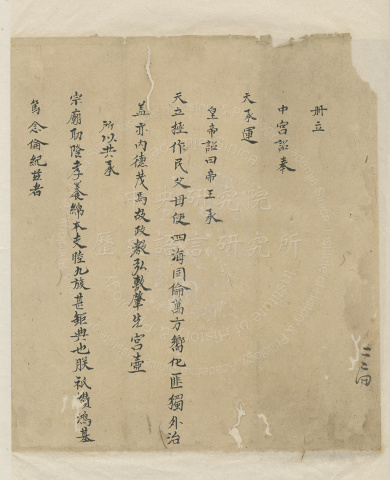 冊立
中宮詔奉
天承運
皇帝詔曰帝王承
天立極作民父母使四海同倫萬方嚮化匪獨外治
蓋亦內德茂焉故政教弘敷肇先宮壼
所以共承
宗廟助隆孝養綿本支睦九族甚鉅典也朕祇纘鴻基
篤念倫紀茲者
研究院
語言研究所